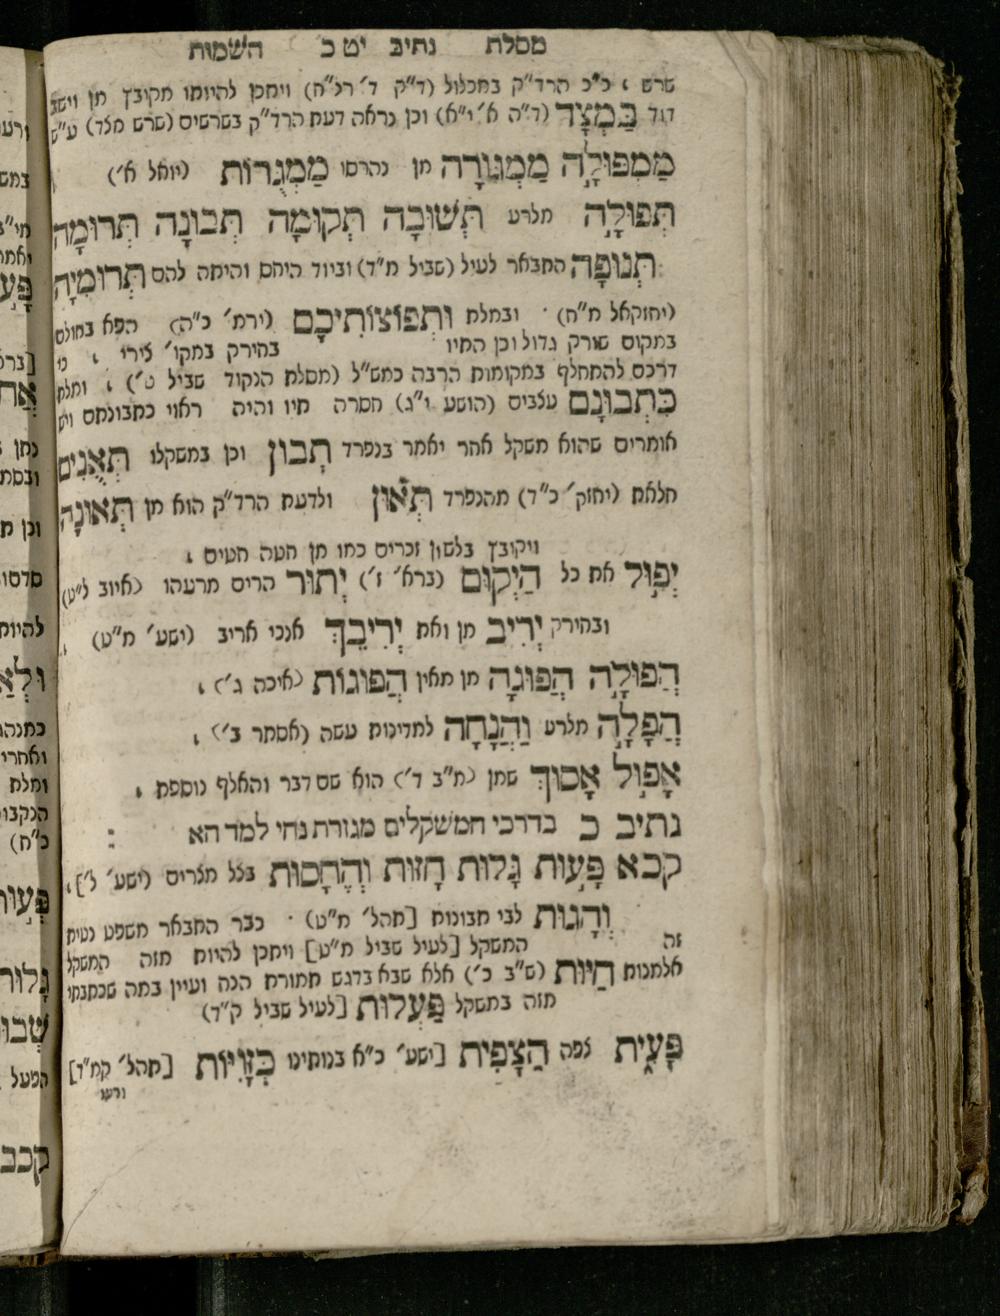 מסלת נתיב יט כ השמות
שרש ׃ כ״כ הרד״ק במכלול (ד״ק ד׳ רנ״ח) ויתכן להיותו מקובץ מן וישב
דוד בַּמְצָד (ד״ה א׳ י״א) וכן נראה דעת הרד״ק בשרשים (שרש מצד) ע״ש
מַמְפּוּלָה מַמְגּוּרָה מן נהרסו מַמְּגֻרוֹת (יואל א׳)
תְּפוּלָה מלרע תְּשׁוּבָה תְּקוּמָה תְּבוּנָה תְּרוּמָה
תְּנוּפָה התבאר לעיל (שביל מ״ד) וביוד היחס והיתה להם תְּרוּמִיָּה
(יחזקאל מ״ח) ׳ ובמלת וּתְפוֹצוֹתִיכֶם (ירמ׳ כ״ה) הפא בחולם
במקום שורק גדול וכן התיו בחירק במקו׳ צירי ׃ כי
דרכם להתחלף במקומות הרבה כמש״ל (מסלת הנקוד שביל ט׳) ׃ ומלת
כִּתְבוּנָם עצבים (הושע י״ג) חסרה תיו והיה ראוי כתבונתם ויש
אומרים שהוא משקל אחר יאמר בנפרד תְבוּן וכן במשקלו תְּאֻנִים
חלאת (יחזק׳ כ״ד) מהנפרד תְּאוּן ולדעת הרד״ק הוא מן תְּאוּנָה
ויקובץ בלשון זכרים כמו מן חטה חטים ׃
יְפוּל את כל הַיְקוּם (ברא׳ ז׳) יְתוּר הרים מרעהו (איוב ל״ט)
ובחירק יְרִיב מן ואת יְרִיבֵךְ אנכי אריב (ישע׳ מ״ט)
הֲפוּלָה הֲפוּגָה מן מאין הֲפוּגוֹת (איכה ג׳) ׃
הֲפָלָה מלרע וַהֲנָחָה למדינות עשה (אסתר ב׳) ׃
אָפוּל אָסוּךְ שמן (מ״ב ד׳) הוא שם דבר והאלף נוספת ׃
נתיב כ בדרכי המשקלים מגזרת נחי למד הא :
קכא פָּעוּת גָּלוּת חָזוּת וְהֶחָסוּת בצל מצרים (ישע׳ ל׳) ׃
וְהָגוּת לבי תבונות [תהל׳ מ״ט) ׳ כבר התבאר משפט נטית
זה המשקל [לעיל שביל מ״ט] ויתכן להיות מזה המשקל
אלמנות חַיּוּת (ש״ב כ׳) אלא שבא בדגש תמורת הנה ועיין במה שכתבתי
מזה במשקל פַּעֲלוּת [לעיל שביל ק״ד)
פָּעִית צפה הַצָּפִית [ישע׳ כ״א בנותינו כְּזָוִיּוֹת [תהל׳ קמ״ד]